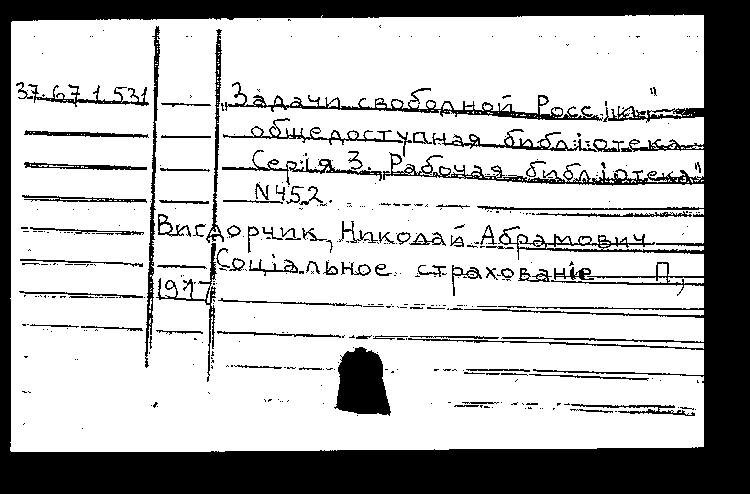 37.67.1.531 „Задачи свободной Россіи"
общедоступная библіотека
Серія 3. „Рабочая библіотека"
N452.
Вигдорчик, Николай Абрамович
Соціальное страхованіе П,
1917